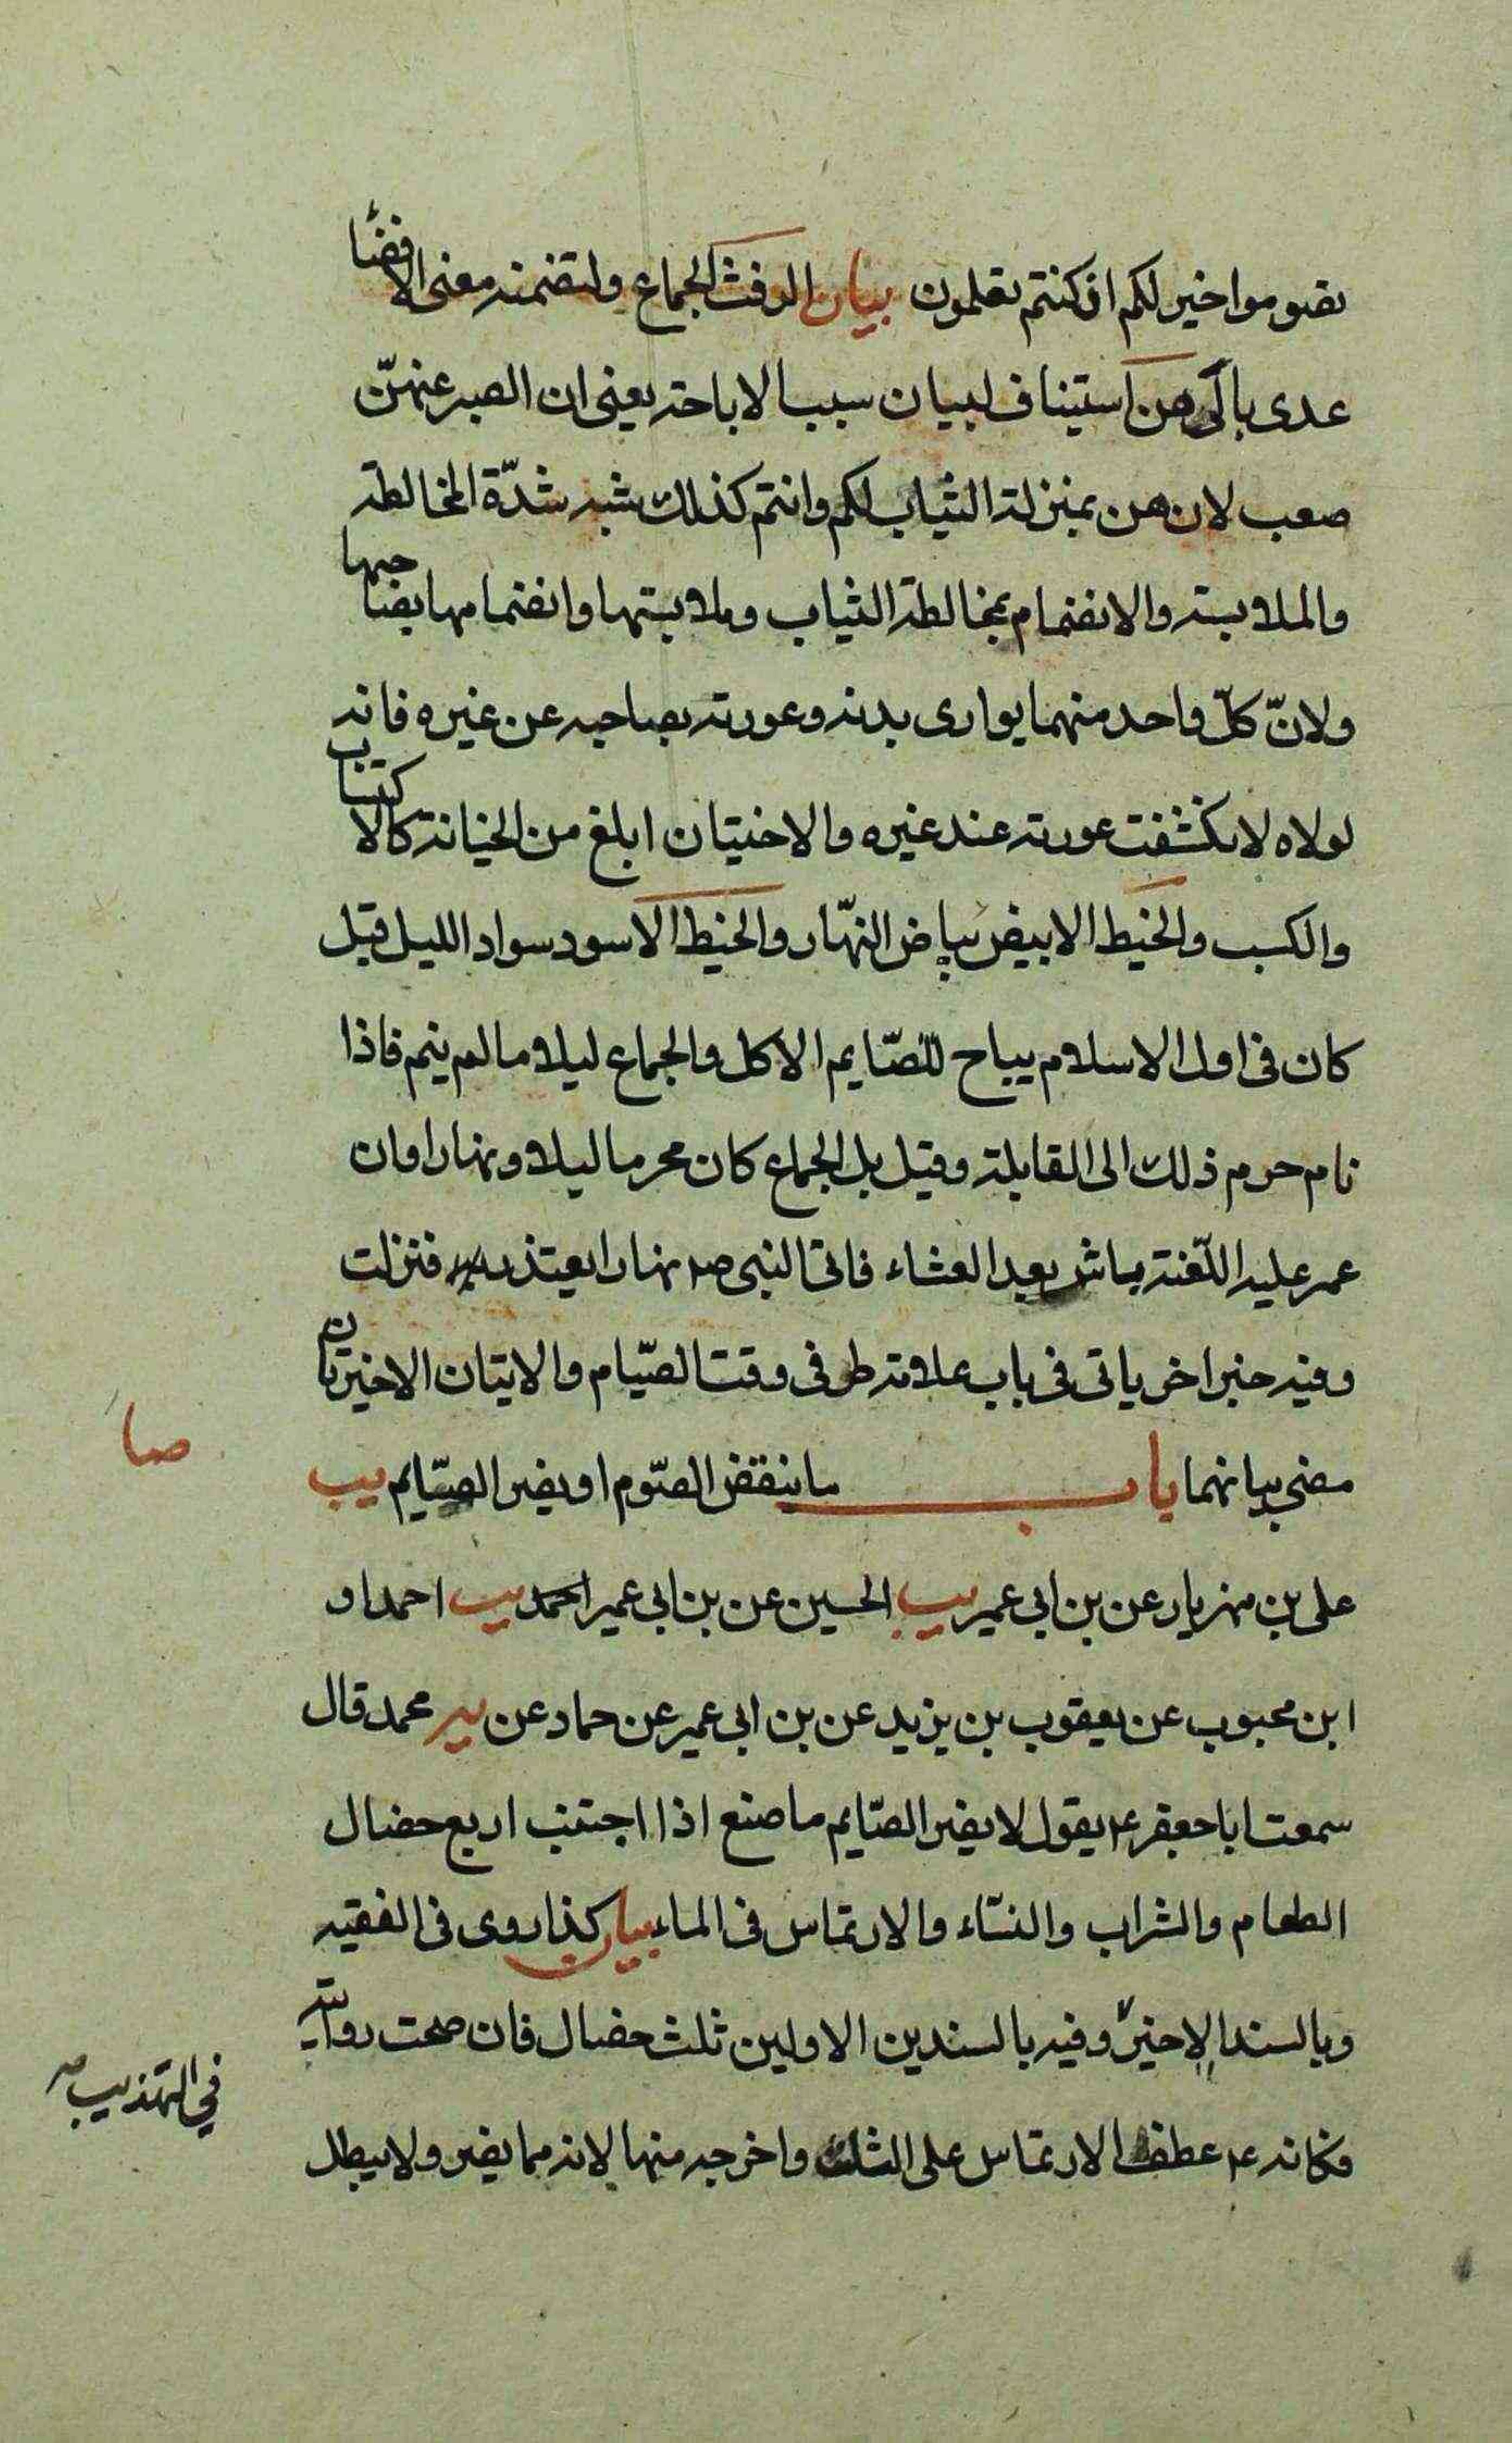 تصوموا خير لكم ان كنتم تعلمون بيان الرفث الجماع ولتضمنه معنى الافضاء
عدى بالى هن استيناف لبيان سبب الاباحة يعنى ان الصبر عنهنّ
صعب لان هن بمنزلة الثياب لكم وانتم كذلك شبه شدّة المخالطة
والملابسة والانضمام بمخالطة الثياب وملابستها وانضمامها بصاحبها
ولانّ كلّ واحد منهما يوارى بدنه وعورته بصاحبه عن غيره فانه
لولاه لانكشفت عورته عند غيره والاختيان ابلغ من الخيانة كالاكتساب
والكسب والخيط الابيض بياض النهّار والخيط الاسود سواد الليل قيل
كان فى اول الاسلام يباح للصّايم الاكل والجماع ليلا ما لم ينم فاذا
نام حرم ذلك الى القابلة وقيل بل الجماع كان محرما ليلا ونهارا وان
عمر عليه اللّعنة باشر بعد العشاء فاتى النبى ص نهارا يعتذر اليه فنزلت
وفيه خبر اخر ياتى فى باب علامة طرفى وقت الصّيام والايتان الاخيرتان
مضى بيانهما باب ما ينقض الصّوم او يضر الصّايم يب
صا
على بن مهزيار عن بن ابى عمير يب الحسين عن بن ابى عمير احمد يب احمد او
ابن محبوب عن يعقوب بن يزيد عن بن ابى عمير عن حماد عن ير محمد قال
سمعت ابا جعفر ع يقول لا يضر الصّايم ما صنع اذا اجتنب اربع خصال
الطعام والشراب والنسّاء والارتماس فى الماء بيان كذا روى فى الفقيه
وبالسند الاخير وفيه بالسندين الاولين ثلث خصال فان صحت روايته
في التهذيب
فكانه ع عطف الارتماس على الثلث واخرجه منها لانه مما يضر ولا يبطل